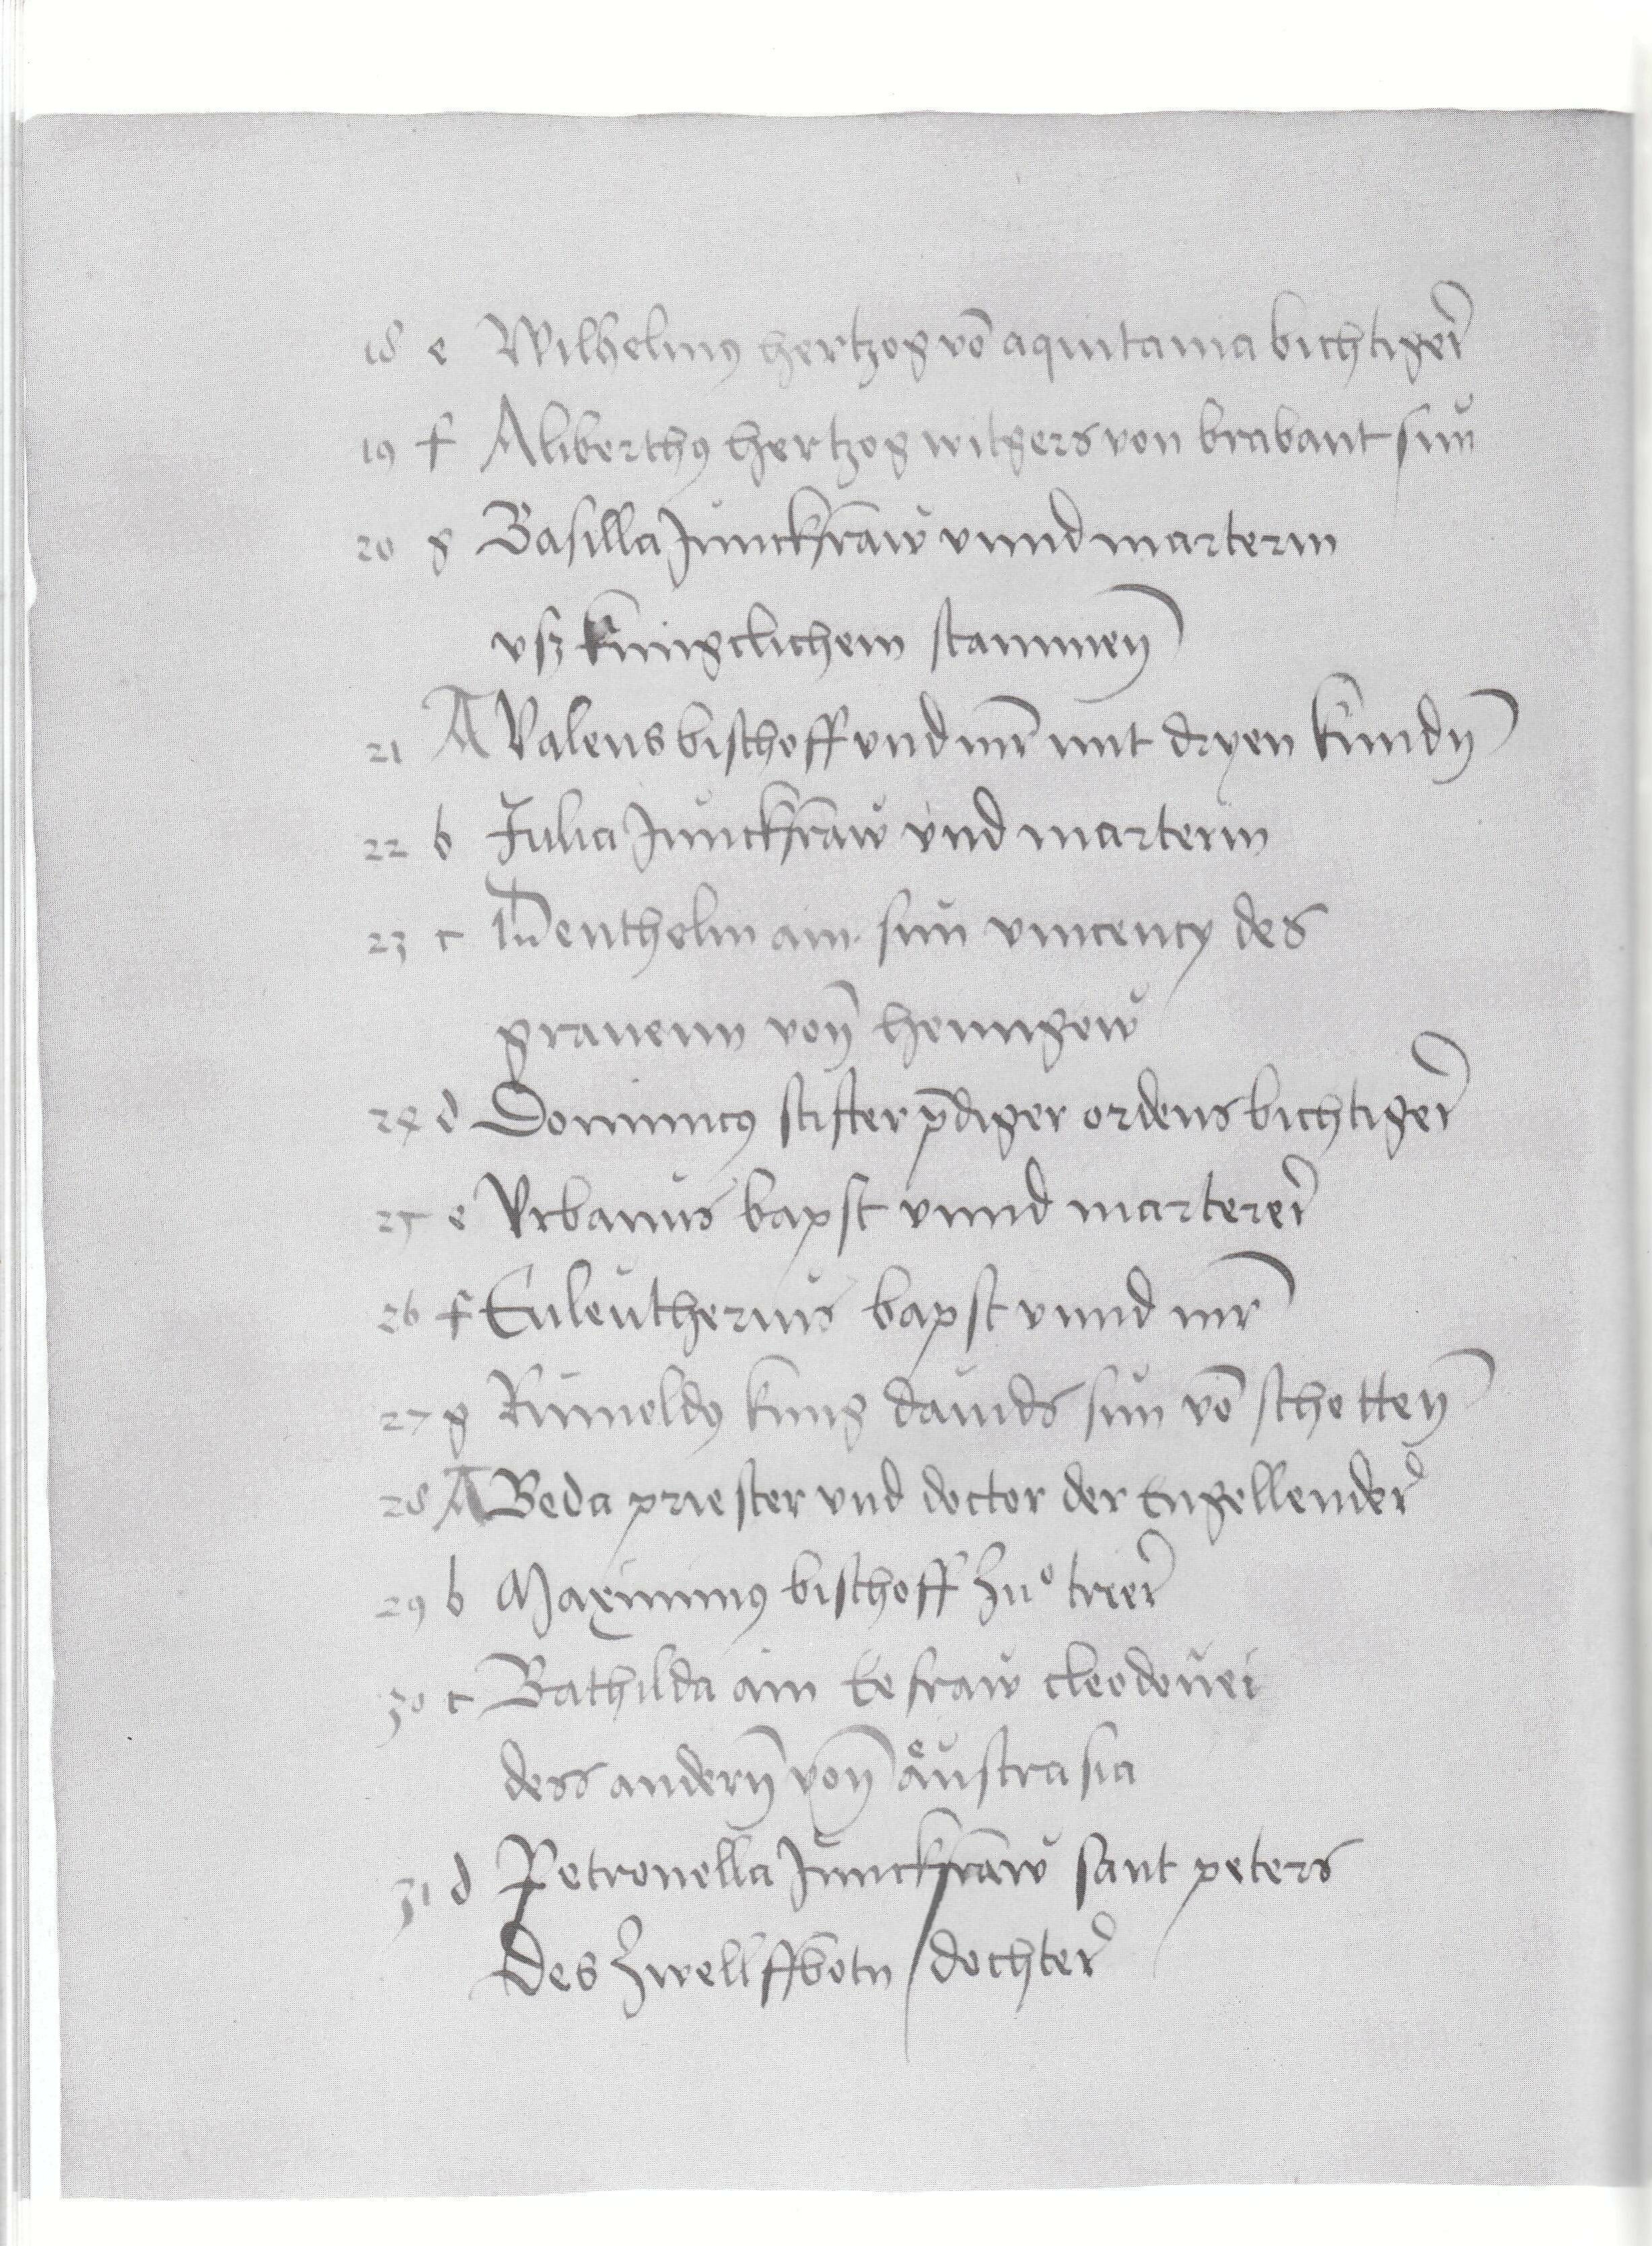 18 e Wilhelmꝰ hertzog vō aquitania bichtiger
19 f Aliberthꝰ hertzog witgers von brabant sŭn
20 g Basilla Junckfraw vnnd marterin
vsz kungclichem stammen
21 A Valens bischoff vnd mr̄ mit dryen kindn
22 b Julia Jŭnckfraw vnd marterin
23 c Dentholin ain sŭn vincency des
grauenn von hennigow
24 d Dominicꝰ stifter p̄diger ordens bichtiger
25 e Vrbanŭs bapst vnnd marterer
26 f Euleŭtheriŭs bapst vnnd mr̄
27 g Rŭmoldꝰ kung dauids sŭn vō schotten
28 A Beda priester vnd doctor der Engellender
29 b Maximinꝰ bischoff zuͦ trier
30 c Bathilda ain Eefraw cleodouei
dess andern von aͤŭstrasia
31 d Petronella Jŭnckfraw sant peters
Des Zwelffbotn dochter